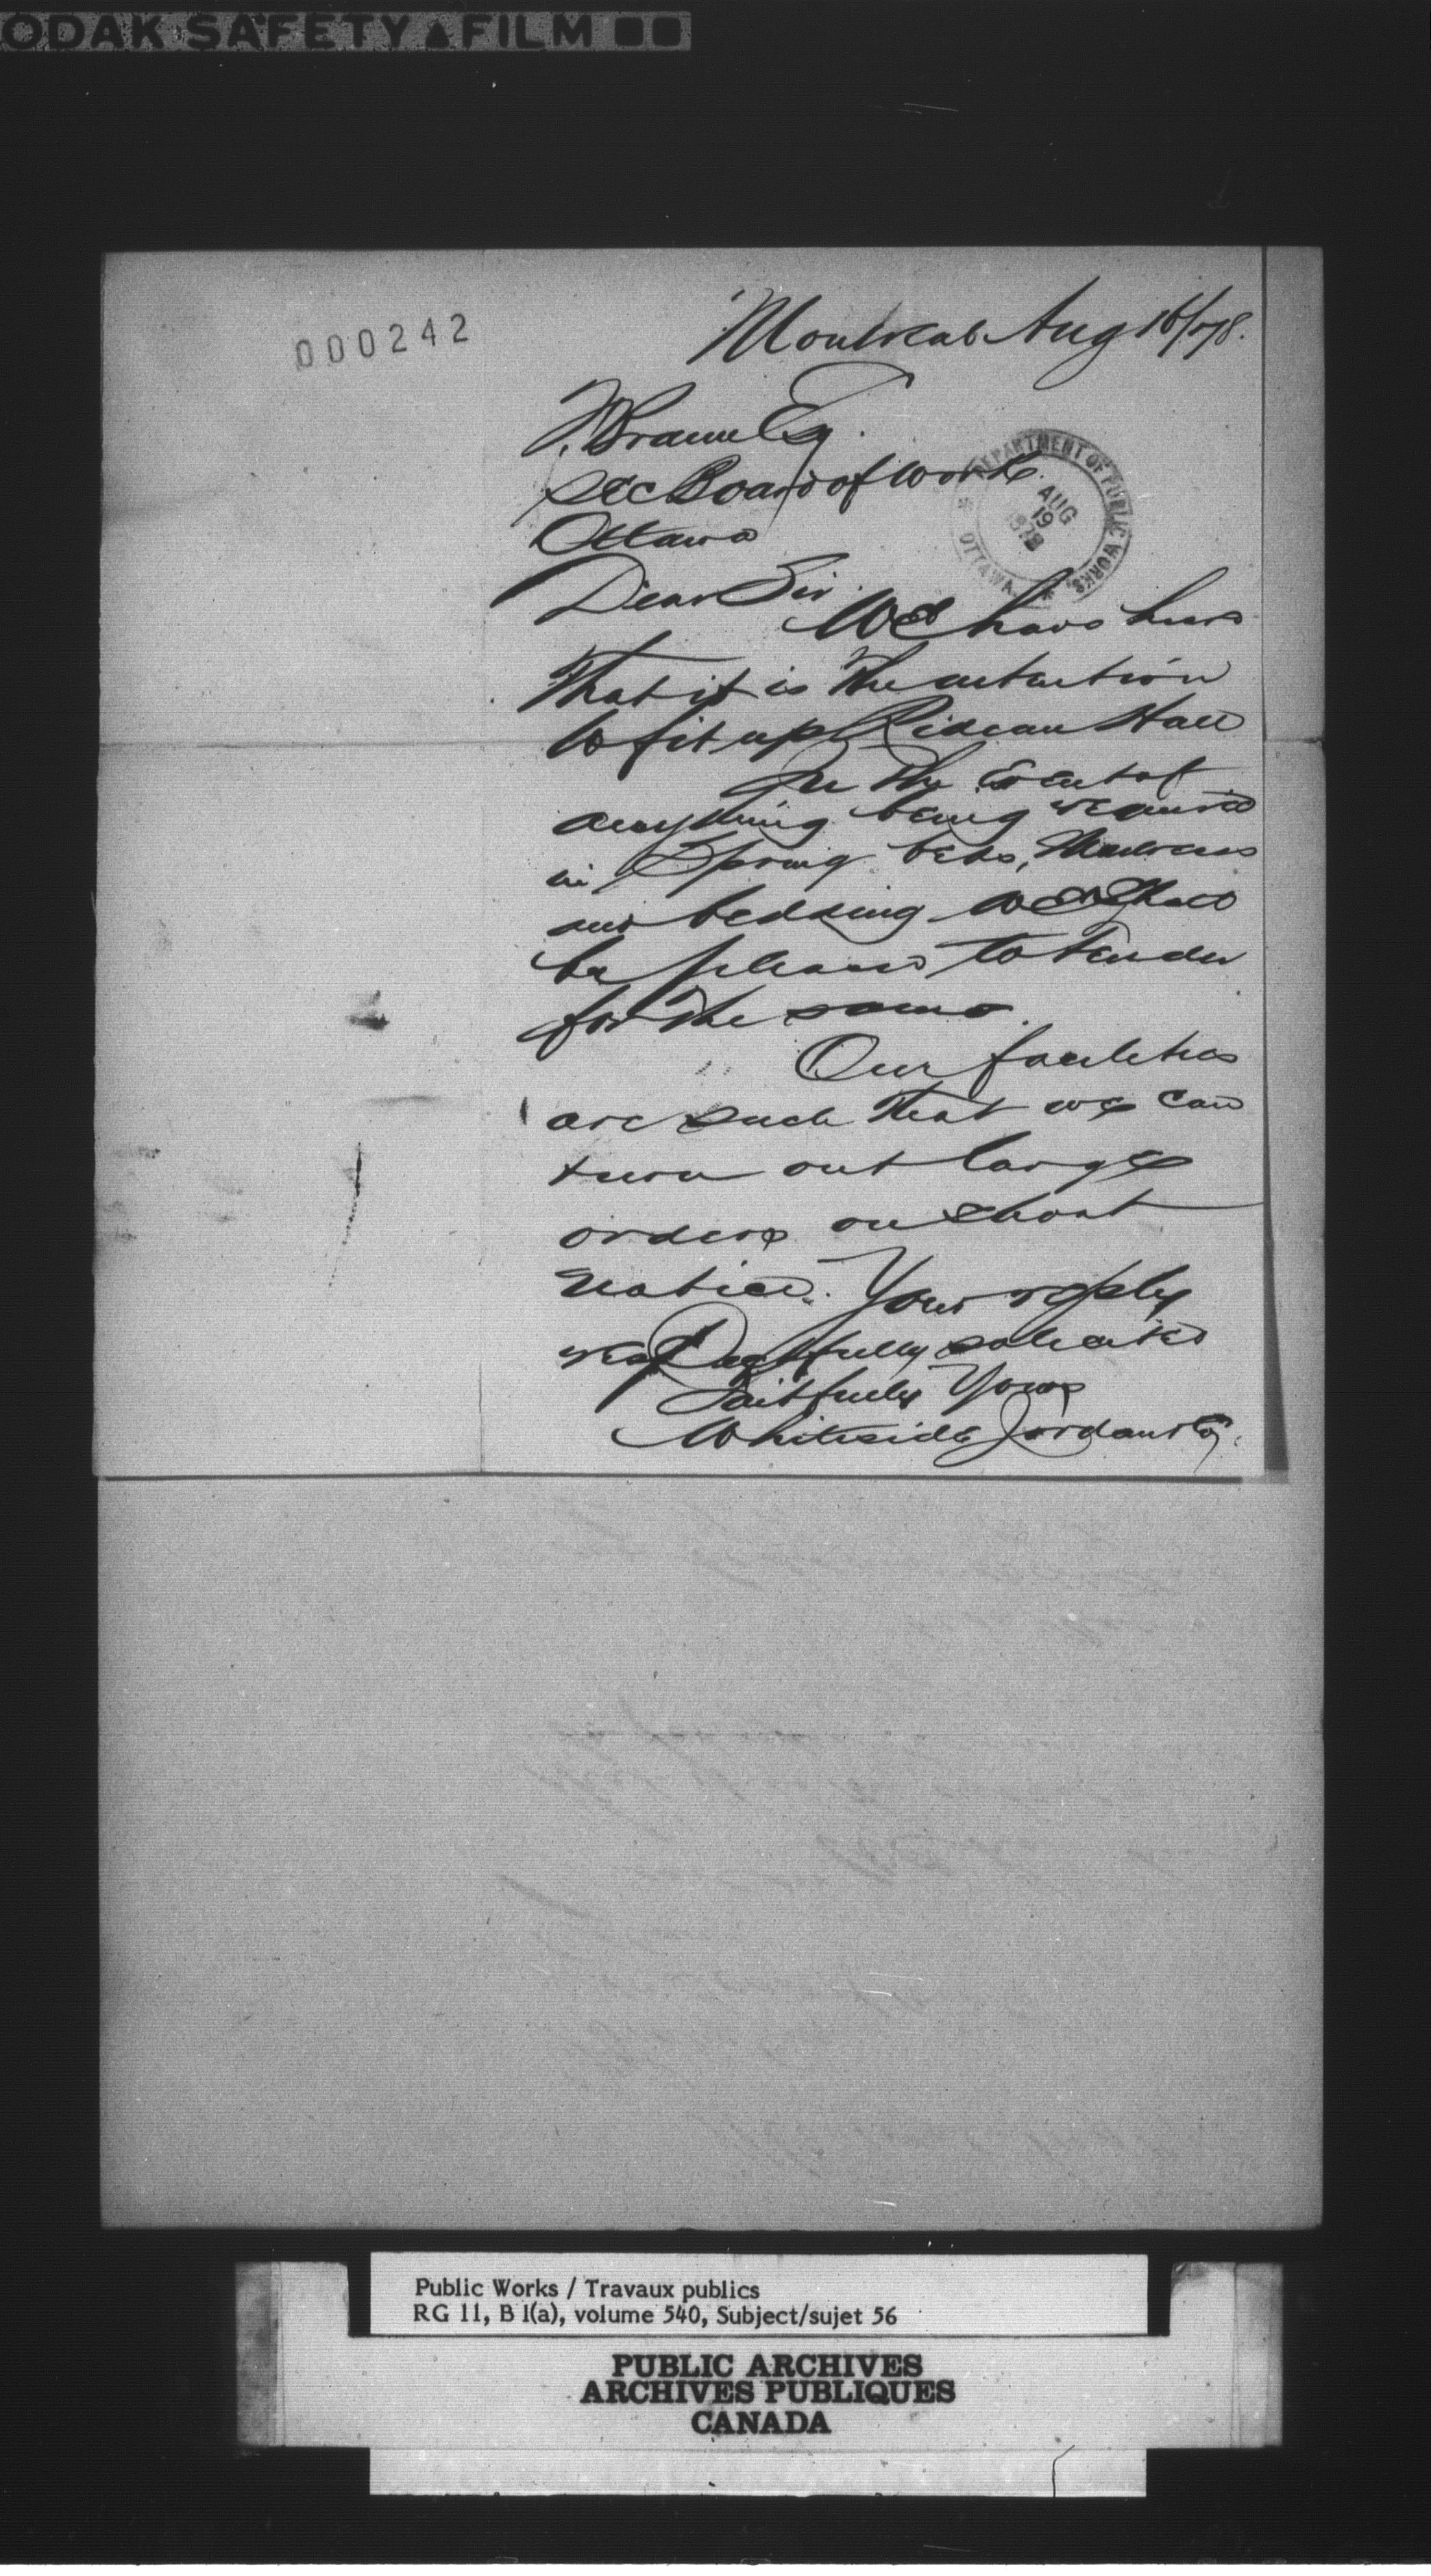 ODAK SAFETY FILM
000242
Montreal Aug 16/78.
F. Braun Esq.
Sec Board of Works.
Ottawa
DEPARTMENT OF PUBLIC WORKS
AUG
19
1878
OTTAWA
Dear Sir.
We have heard
That it is the intention
to fit up Rideau Hall
In the Event of
anything being required
in Spring beds, Mattrass
and bedding we shall
be pleased to tender
for the same.
Our facilities
are such that we can
turn out large
orders on short
notice. Your reply
respectfully solicited
Faithfully Yours
Whiteside Jordan & Co.
Public Works / Travaux publics
RG 11, B 1(a), volume 540, Subject/sujet 56
PUBLIC ARCHIVES
ARCHIVES PUBLIQUES
CANADA